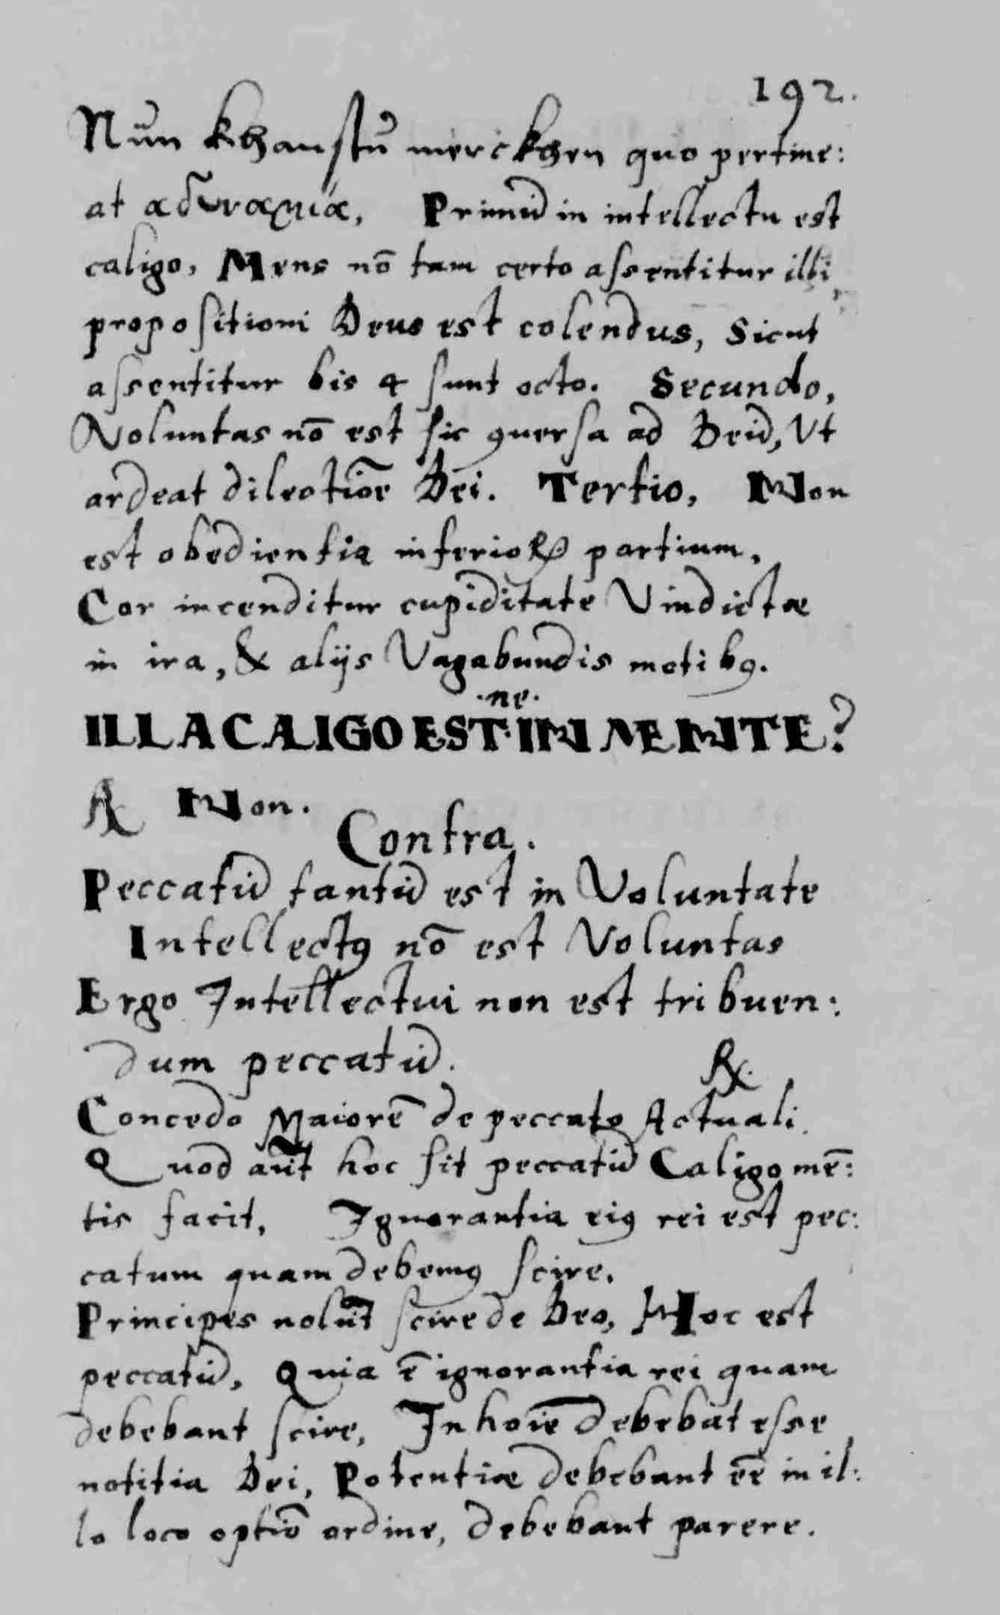 192.
Nun khanstu merckhen quo pertine:
at ἀδυναμία, Primū in intellectu est
caligo, Mens nō tam certo assentitur illi
propositioni Deus est colendus, Sicut
assentitur bis 4 sunt octo. Secundo,
Voluntas nō est sic ꝯuersa ad Deū, Vt
ardeat dilectiōe Dei. Tertio, Non
est obedientia inferioꝝ partium,
Cor incenditur cupiditate Vindictæ
in ira, & alijs Vagabundis motibꝰ.
·ne·
ILLA CALIGO EST IN MENTE?
℞ Non.
Contra.
Peccatū tantū est in Voluntate
Intellectꝰ nō est Voluntas
Ergo Intellectui non est tribuen:
dum peccatū. ℞.
Concedo Maiorē de peccato Actuali
Quod aūt hoc sit peccatū Caligo mē:
tis facit, Ignorantia eiꝰ rei est pec:
catum quam debemꝰ scire.
Principes nolūt scire de Deo, Hoc est
peccatū, Quia ē ignorantia rei quam
debebant scire, In hoīe debebat esse
notitia Dei, Potentiæ debebant eē in il:
lo loco optīo ordine, debebant parere.